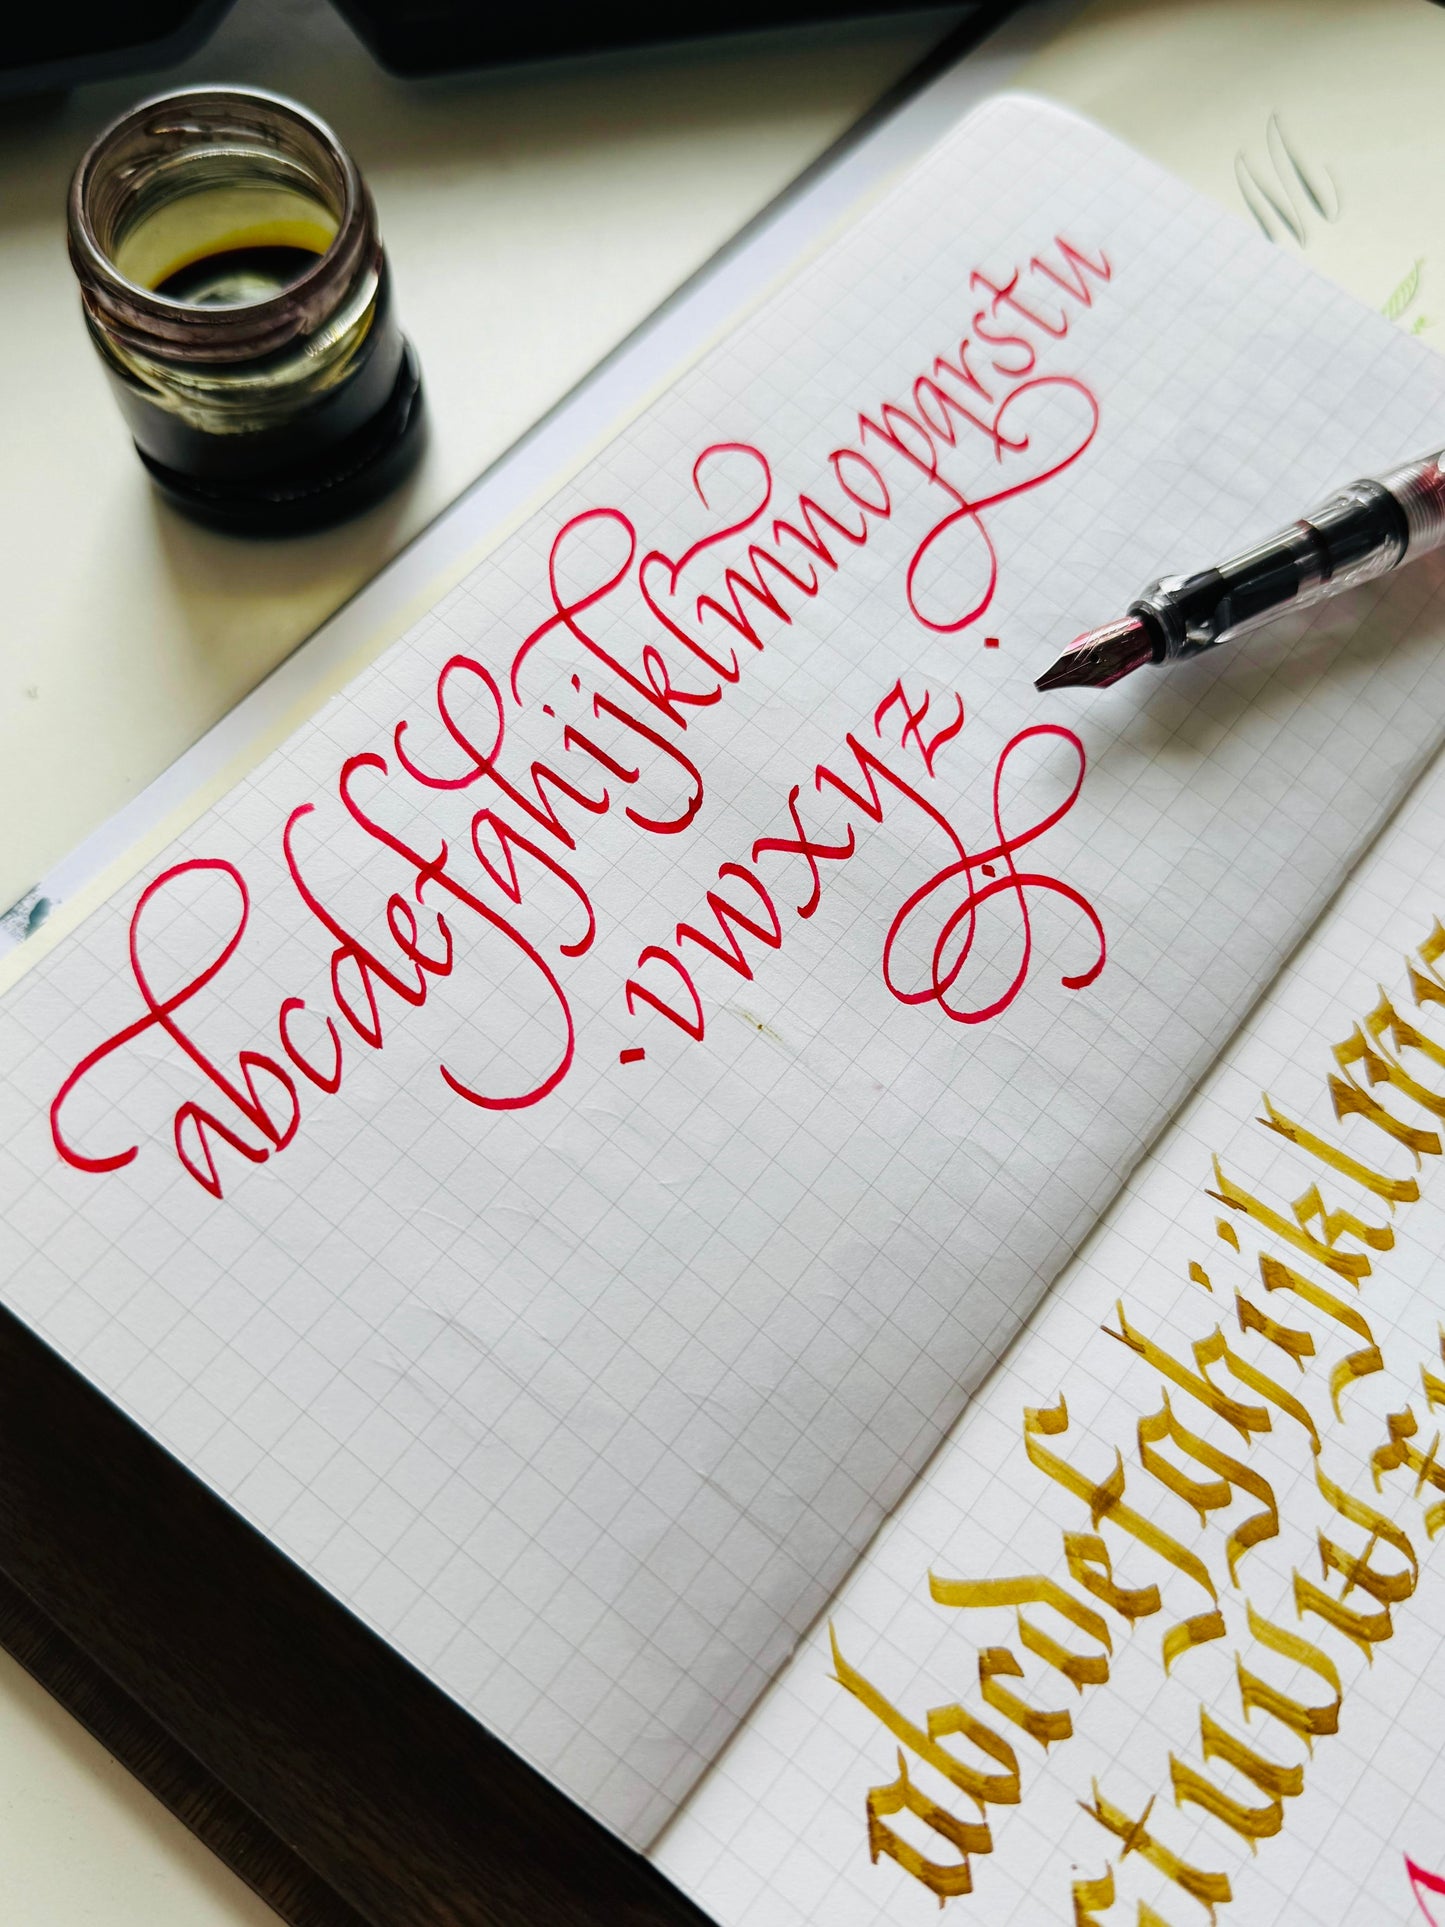 abcdefghijklmnopqrstu
·vwxyz·
abcdefghijklm
stuvwx